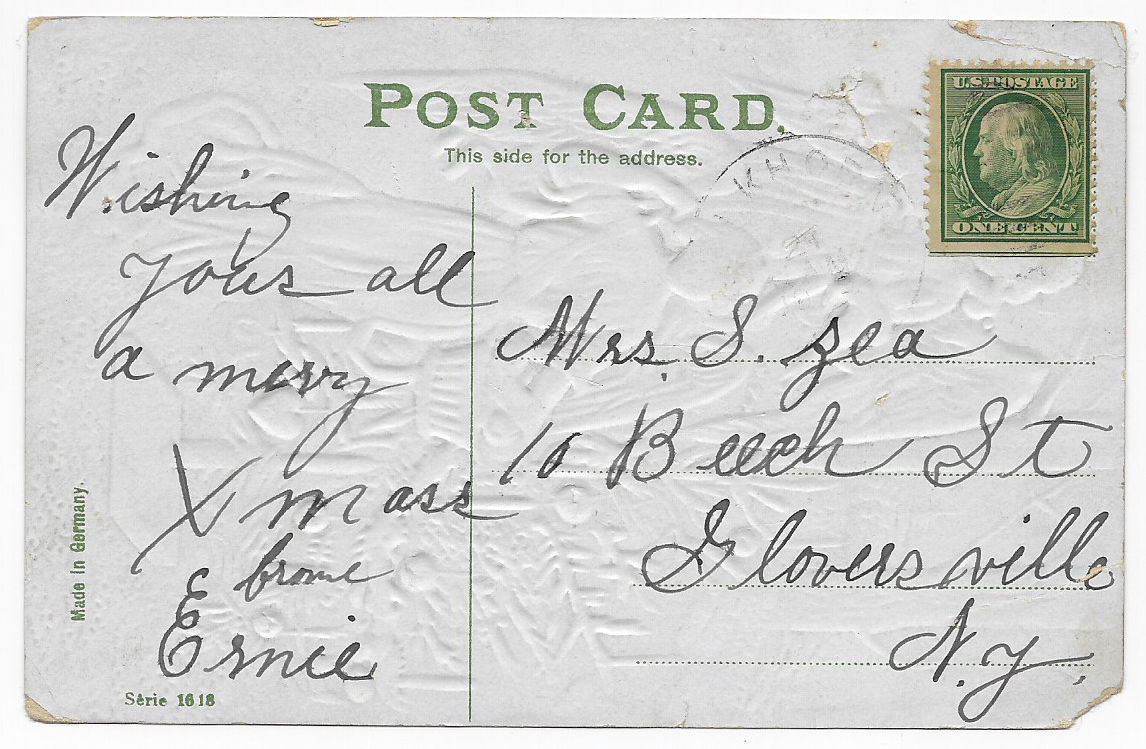 POST CARD.
This side for the address.
U.S. POSTAGE
ONE CENT
Wishing
yous all
a merry
Xmass
Ernie
Mrs. S. Zea
10 Beech St
Gloversville
N.Y.
Made in Germany.
Série 1618